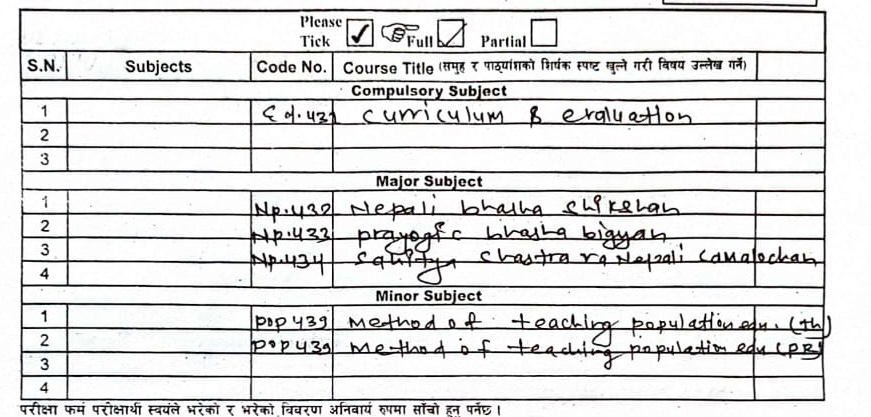 Please
Tick ✓ Full ✓ Partial
S.N. Subjects Code No. Course Title (समुह र पाठ्यांशको शिर्षक स्पष्ट खुल्ने गरी बिषय उल्लेख गर्ने)
Compulsory Subject
1 Ed.431 curriculum & evaluation
2
3
Major Subject
1 Np.432 Nepali bhasha shikshan
2 Np.433 prayogic bhasha bigyan
3 Np.434 Sahitya Chastra ra Nepali Samalochan
4
Minor Subject
1 pop 439 Method of teaching population edu. (th)
2 pop 439 Method of teaching population edu (PR)
3
4
परीक्षा फर्म परीक्षार्थी स्वयंले भरेको र भरेको विवरण अनिवार्य रुपमा साँचो हुनु पर्नेछ।